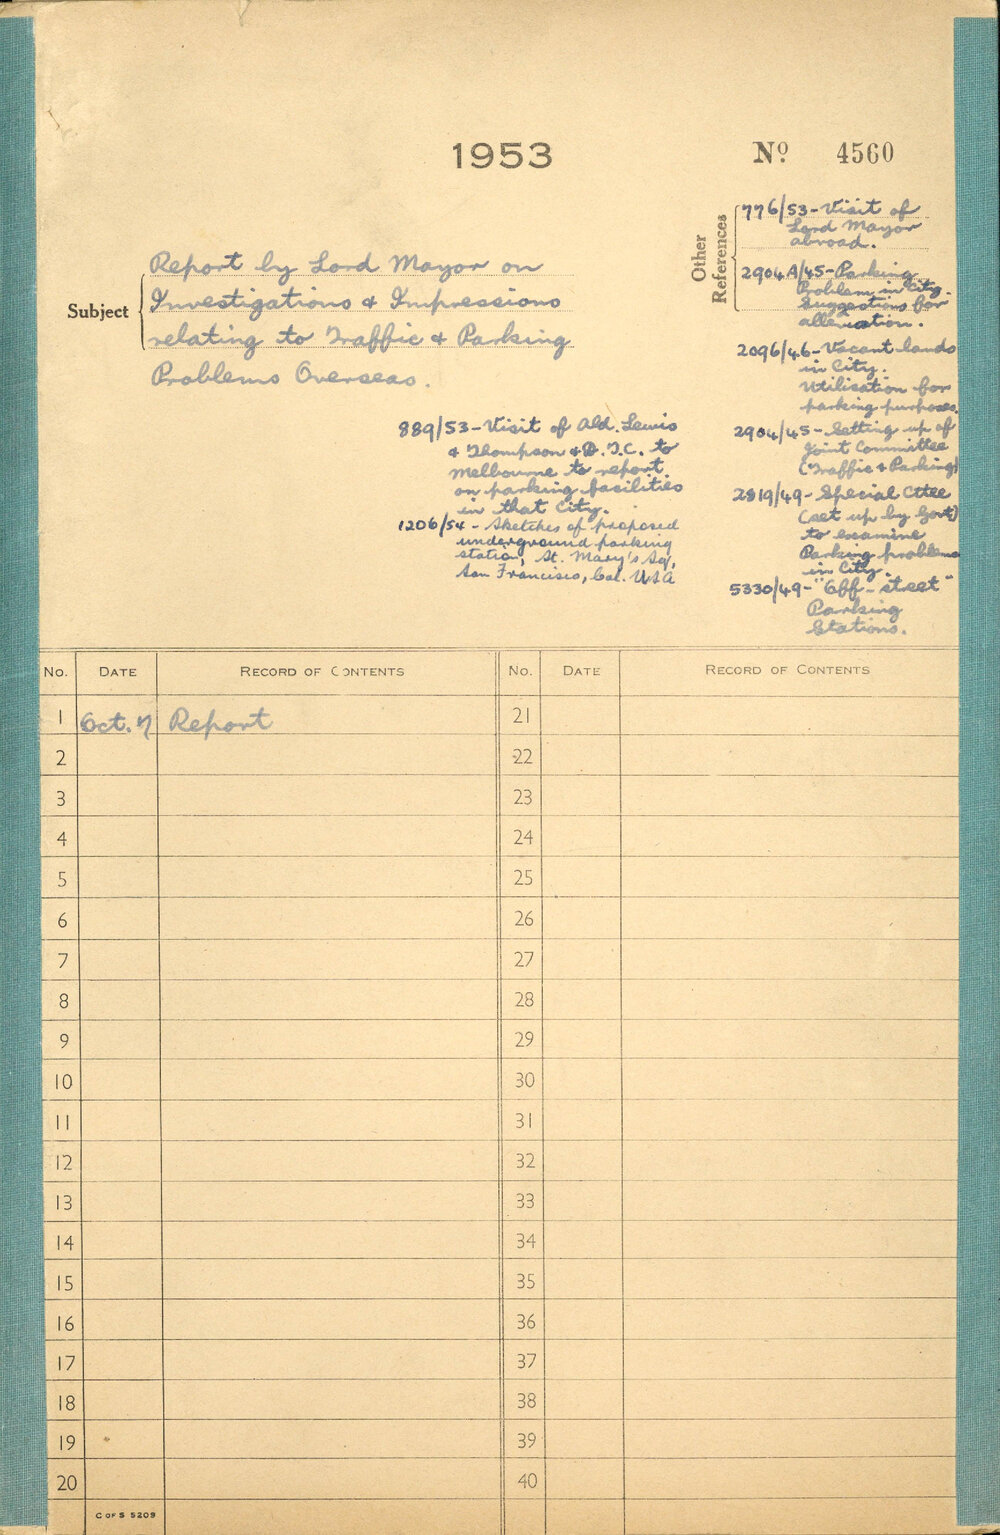 1953
Nº 4560
Subject
Report by Lord Mayor on
Investigations & Impressions
relating to Traffic & Parking
Problems Overseas.
Other
References
776/53-Visit of
Lord Mayor
abroad.
2904A/45-Parking
Problem in City.
Suggestions for
alleviation.
2096/46-Vacant lands
in City.
Utilisation for
parking purposes.
2904/45-Setting up of
Joint Committee
(Traffic & Parking)
2819/49-Special Cttee
(set up by Govt)
to examine
Parking problems
in City.
5330/49-"Off-street"
Parking
Stations.
889/53-Visit of Ald. Lewis
& Thompson & D.T.C. to
Melbourne to report
on parking facilities
in that City.
1206/54-Sketches of proposed
underground parking
station, St. Mary's Sq,
San Francisco, Cal. USA
No. DATE RECORD OF CONTENTS No. DATE RECORD OF CONTENTS
1 Oct. 7 Report 21
2 22
3 23
4 24
5 25
6 26
7 27
8 28
9 29
10 30
11 31
12 32
13 33
14 34
15 35
16 36
17 37
18 38
19 39
20 40
C OF S 5209